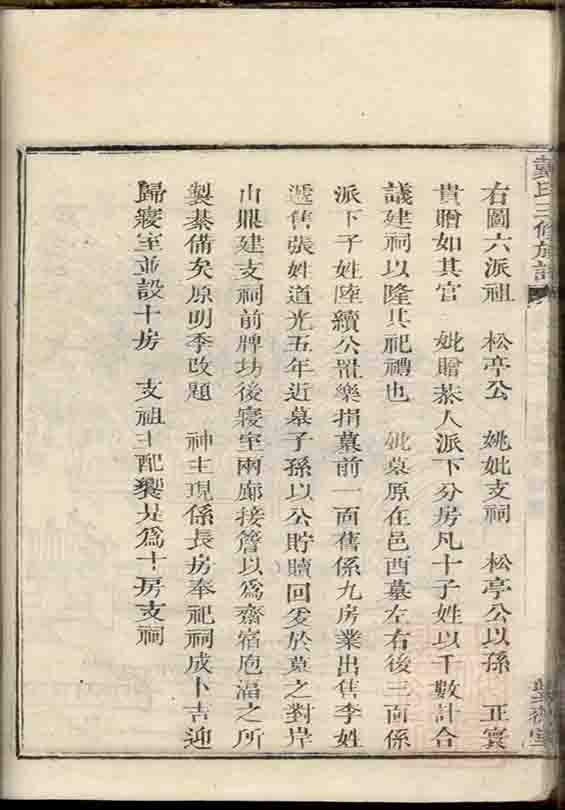 戴氏三修族譜
右圖六派祖　松亭公　姚妣支祠　松亭公以孫　正寰
貴贈如其官　妣贈恭人派下分房凡十子姓以千數計合
議建祠以隆其祀禮也　妣墓原在邑西墓左右後三面係
派下子姓陸續公置樂捐墓前一面舊係九房業出售李姓
遞售張姓道光五年近墓子孫以公貯贖回爰於墓之對岸
山鼎建支祠前牌坊後寢室兩廊接簷以爲齋宿庖湢之所
製綦備矣原明季改題　神主現係長房奉祀祠成卜吉迎
歸寢室並設十房　支祖主配饗是爲十房支祠